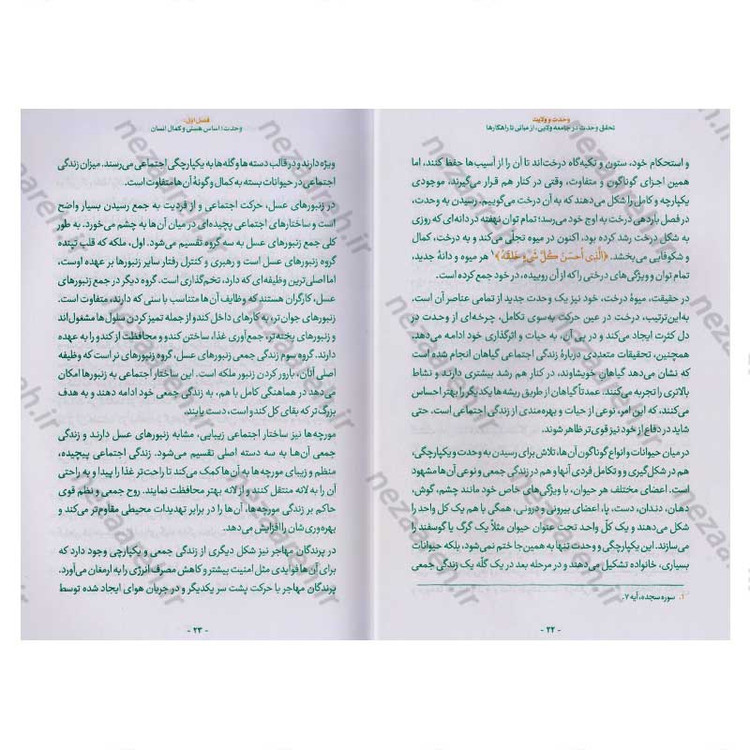 وحدت و ولایت
تحقق وحدت، در جامعه ولایی، از مبانی تا راهکارها
و استحکام خود، ستون و تکیه‌گاه درخت‌اند تا آن را از آسیب‌ها حفظ کنند، اما
همین اجزای گوناگون و متفاوت، وقتی در کنار هم قرار می‌گیرند، موجودی
یکپارچه و کامل را شکل می‌دهند که به آن درخت می‌گوییم. رسیدن به وحدت،
در فصل باردهی درخت به اوج خود می‌رسد؛ تمام توان نهفته در دانه‌ای که روزی
به شکل درخت رشد کرده بود، اکنون در میوه تجلی می‌کند و به درخت، کمال
و شکوفایی می‌بخشد. ﴿الَّذِی أَحسَنَ کُلَّ شَیءٍ خَلَقَهُ﴾۱ هر میوه و دانهٔ جدید،
تمام توان و ویژگی‌های درختی را که از آن روییده، در خود جمع کرده است.
در حقیقت، میوهٔ درخت، خود نیز یک وحدت جدید از تمامی عناصر آن است.
به‌این‌ترتیب، درخت در عین حرکت به‌سوی تکامل، چرخه‌ای از وحدت در
دل کثرت ایجاد می‌کند و در پی آن، به حیات و اثرگذاری خود ادامه می‌دهد.
همچنین، تحقیقات متعددی دربارهٔ زندگی اجتماعی گیاهان انجام شده است
که نشان می‌دهد گیاهان خویشاوند، در کنار هم رشد بیشتری دارند و نشاط
بالاتری را تجربه می‌کنند. عمدتاً گیاهان از طریق ریشه‌ها یکدیگر را بهتر احساس
می‌کنند، که این امر، نوعی از حیات و بهره‌مندی از زندگی اجتماعی است. حتی
شاید در دفاع از خود نیز قوی‌تر ظاهر شوند.
در میان حیوانات و انواع گوناگون آن‌ها، تلاش برای رسیدن به وحدت و یکپارچگی،
هم در شکل‌گیری و و تکامل فردی آنها و هم در زندگی جمعی و نوعی آن‌ها مشهود
است. اعضای مختلف هر حیوان، با ویژگی‌های خاص خود مانند چشم، گوش،
دهان، دندان، دست، پا، اعضای بیرونی و درونی، همگی با هم یک کل واحد را
شکل می‌دهند و یک کلّ واحد تحت عنوان حیوان مثلاً یک گرگ یا گوسفند را
می‌سازند. این یکپارچگی و وحدت تنها به همین‌جا ختم نمی‌شود، بلکه حیوانات
بسیاری، خانواده تشکیل می‌دهند و در مرحله بعد در یک گلّه یک زندگی جمعی
۱. سوره سجده، آیه ۷.
- ۲۲ -
فصل اول:
وحدت؛ اساس هستی و کمال انسان
ویژه دارند و در قالب دسته‌ها و گله‌ها به یکپارچگی اجتماعی می‌رسند. میزان زندگی
اجتماعی در حیوانات بسته به کمال و گونهٔ آن‌ها متفاوت است.
در زنبورهای عسل، حرکت اجتماعی و از فردیت به جمع رسیدن بسیار واضح
است و ساختارهای اجتماعی پیچیده‌ای در میان آن‌ها به چشم می‌خورد. به طور
کلی جمع زنبورهای عسل به سه گروه تقسیم می‌شود. اول، ملکه که قلب تپنده
زندگی جمعی است و رهبری و کنترل رفتار سایر زنبورها بر عهده اوست،
اما اصلی‌ترین وظیفه‌ای که دارد، تخم‌گذاری است. گروه دیگر در جمع زنبورهای
عسل، کارگران هستند که وظایف آن‌ها متناسب با سنی که دارند، متفاوت است.
زنبورهای جوان‌تر، به کارهای داخل کندو از جمله تمیز کردن سلول‌ها مشغول‌اند
و زنبورهای پخته‌تر، جمع‌آوری غذا، ساختن کندو و محافظت از کندو را به عهده
دارند. گروه سوم زندگی جمعی زنبورهای عسل، گروه زنبورهای نر است که وظیفه
اصلی آنان، بارور کردن زنبور ملکه است. این ساختار اجتماعی به زنبورها امکان
می‌دهد در هماهنگی کامل با هم، به زندگی جمعی خود ادامه دهند و به هدف
بزرگ‌تر که بقای کل کندو است، دست یابند.
مورچه‌ها نیز ساختار اجتماعی زیبایی، مشابه زنبورهای عسل دارند و زندگی
جمعی آن‌ها به سه دسته اصلی تقسیم می‌شود. زندگی اجتماعی پیچیده،
منظم و زیبای مورچه‌ها به آن‌ها کمک می‌کند تا راحت‌تر غذا را پیدا و به راحتی
آن را به لانه منتقل کنند و از لانه بهتر محافظت نمایند. روح جمعی و نظم قوی
حاکم بر زندگی مورچه‌ها، آن‌ها را در برابر تهدیدات محیطی مقاوم‌تر می‌کند و
بهره‌وری‌شان را افزایش می‌دهد.
در پرندگان مهاجر نیز شکل دیگری از زندگی جمعی و یکپارچی وجود دارد که
برای آن‌ها فوایدی مثل امنیت بیشتر و کاهش مصرف انرژی را به ارمغان می‌آورد.
پرندگان مهاجر با حرکت پشت سر یکدیگر و در جریان هوای ایجاد شده توسط
- ۲۳ -
nezaareh.ir